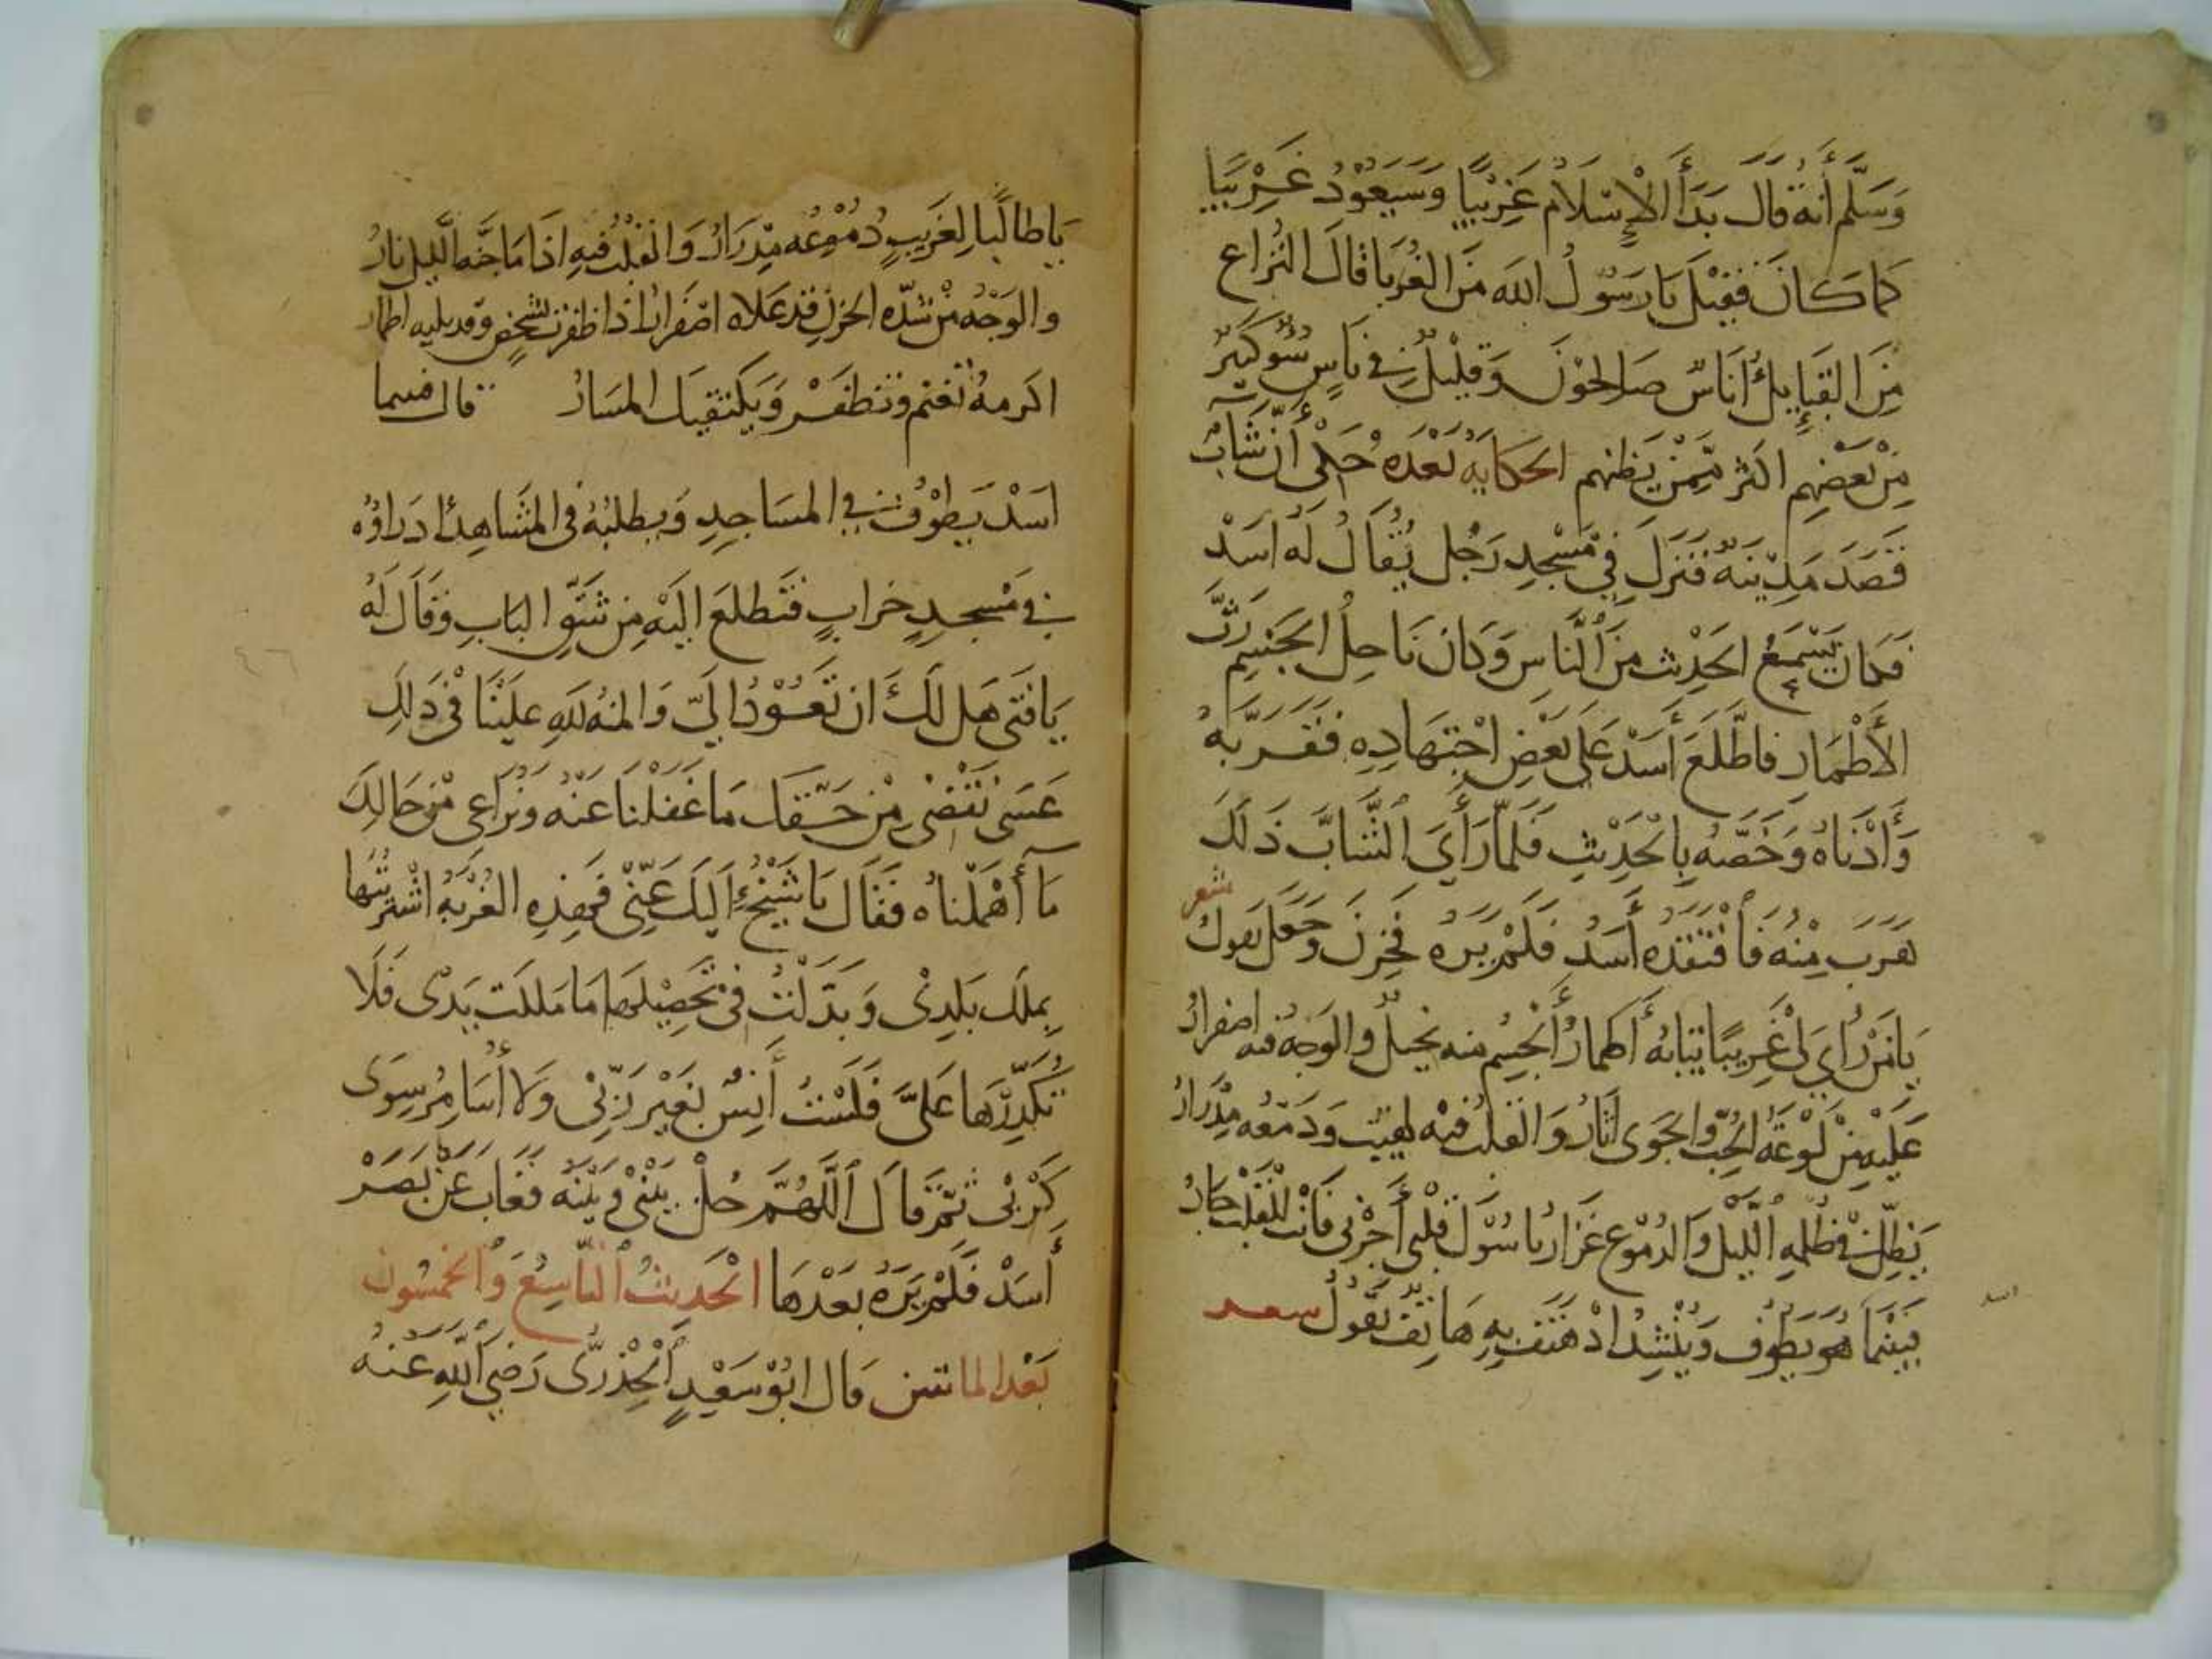 وَسَلَّم أَنَّهُ قَالَ بَدَأَ الْإِسْلَامُ غَرِيْبًا وَسَيَعُوْدُ غَرِيْبًا
كما كَانَ فَقِيْلَ يَا رَسُوْلُ اللهِ مَنِ الغُرَبَا قَالَ النُزاع
مِنَ القَبَايِلِ أُنَاسٌ صَالِحُوْنَ وَقَلِيْلٌ فِي نَاسٍ سُوْ كَثِيْر
مِنْ بَعْضِهِم اكثر مِمَّنْ
الحكايه بَعْدَهُ حُكِيَ أَنَّ شَابٌ
قَصَدَ مَدِيْنَةً فَنَزَلَ فِيْ مَسْجِدِ رَجُلٍ يُقَالُ لَهُ اسَدْ
فَكَانَ يَسْمَعُ الحَدِيْث مِنَ النَّاسِ وَكَانَ نَاحِلَ الجَسِيْمِ رَثَّ
الأَطْمَارِ فَاطَّلَعَ أَسَدْ عَلى بَعْضِ اجْتِهَادِهِ فَقَرَّبَهُ
وَأَدْنَاهُ وَخَصَّهُ بِالْحَدِيْثِ فَلَمَّا رَأَيَ الشَّابَّ ذَلكَ
هَرَبَ مِنْهُ فَافْتَقَدَهُ أَسَدُ فَلَمْ يَرَه فَحَزِنَ وَجَعَل يَقول شعر
يَا مَنْ رَاي لِيْ غَرِيبًا ثِيَابُهُ أَطمارُ أَلْجِسْمِ منه نحيلٌ والوَجهُ فيه اصفرارُ
عَلَيْهِ مِنْ لَوْعَةِ الحُبِّ والجَوى آثَارُ وَالقلبُ فيْه لهِيْبٌ وَدَمْعُه مِدْرَارُ
يَظَلّ فِيْ ظُلمةِ اللَّيْلِ وَالدُمُوْع غِزَارُ يا سُوْلَ قَلْبي أَجْرنى فَأنْت للْقَلبِ جَارُ
بَيْنَمَا هُو يَطُوْف وَيُنْشِدُ اذْ هَتَفَ بِهِ هَاتِفٌ يَقُوْلُ
يَا طالبًا لِغَرِيبٍ دُمُوْعُه مِدْرَارُ وَالقَلْبُ فيهِ اذَا مَا جَنَّهُ اللَّيلُ نارُ
والوَجْهُ مِنْ شدَّه الحزن قد عَلاه اصْفرارُ اذا ظفرت بشَخصٍ وَقد بليه اطمار
اكرمهُ تغنم وَتظفَرْ وَيَكتفيك المَسَارُ قال فبينما
اسَدْ يَطُوْفُ فِي المسَاجدِ وَيطلبُهُ في المَشَاهدِ اذ رَاوُه
فِي مَسْجِدٍ خرابٍ فَتَطلعَ اليَهْ مِن شَقِّ البَابِ وَقَالَ لَهُ
يَا فَتَى هَل لَكَ ان تَعُوْدُ اليَّ وَالمنهُ للهِ علَيْنَا فْي ذَلِك
عَسَى نَقْضِي مِنْ حَقِّكَ مَا غَفلْنا عَنْه وَنُرَاعِي مِنْ حَالِكَ
مَا أَهْمَلْناه فَقَال يَا شَيْخُ الَيكَ عَنِّيْ فَهذِهِ الغُرْبَهُ اشْتَريْتُها
بملك بَلَدِيْ وَبَذَلْتُ فيْ تَحصِيْلِهَا مَا مَلكَت يَدِيْ فَلَا
تُكَدِّرْهَا عَليَّ فَلَسْتُ أَنِسْ بغَيْرِ رَبِّيْ وَلَا أُسَامِرُ سِوَى
كَرْبيْ ثمَّ قَالَ اللَّهُمَّ حُلْ بَيْنِيْ وَبَيْنَهُ فَغَابَ عَنْ بَصَرْ
أَسَدْ فَلَمْ يَرَهُ بَعْدَهَا الْحَدِيْثُ التَّاسِعُ وَالخمسُونَ
بَعْدَ الماتين قَال ابُوْ سَعْيدٍ الْخِدْرِيْ رَضيَ اللهِ عَنْهُ